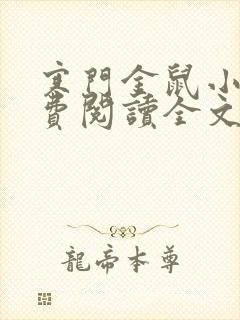 寒門金鼠.小
費閱讀全文
龍帝本尊